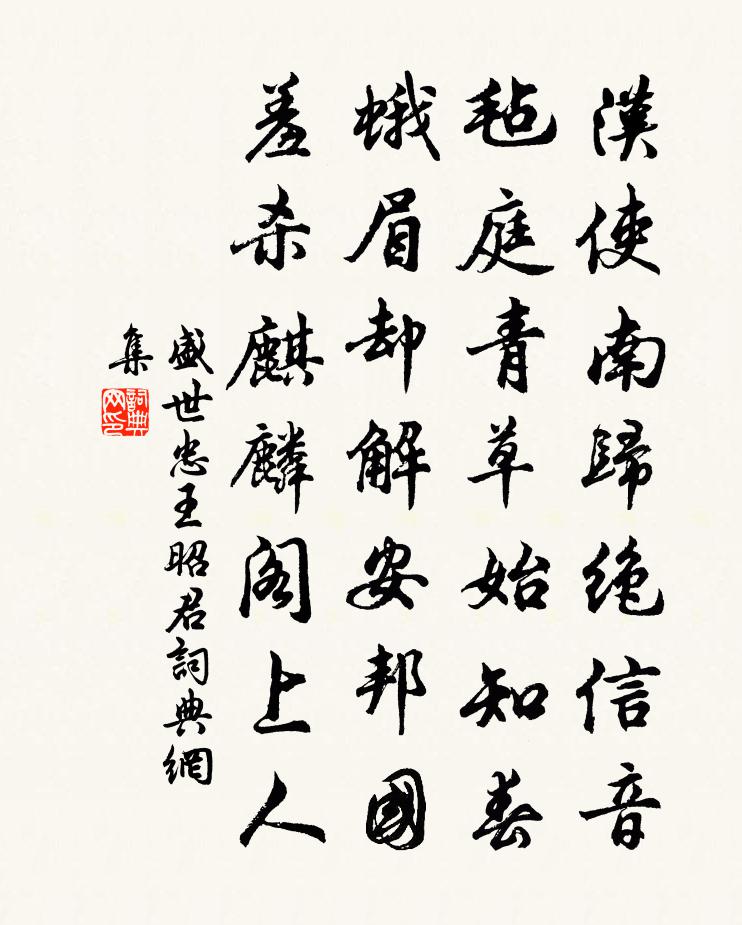 漢使南歸絶信音
毡庭青草始知春
蛾眉却解安邦國
羞杀麒麟阁上人
盛世忠王昭君詞典網
集
詞典
网印